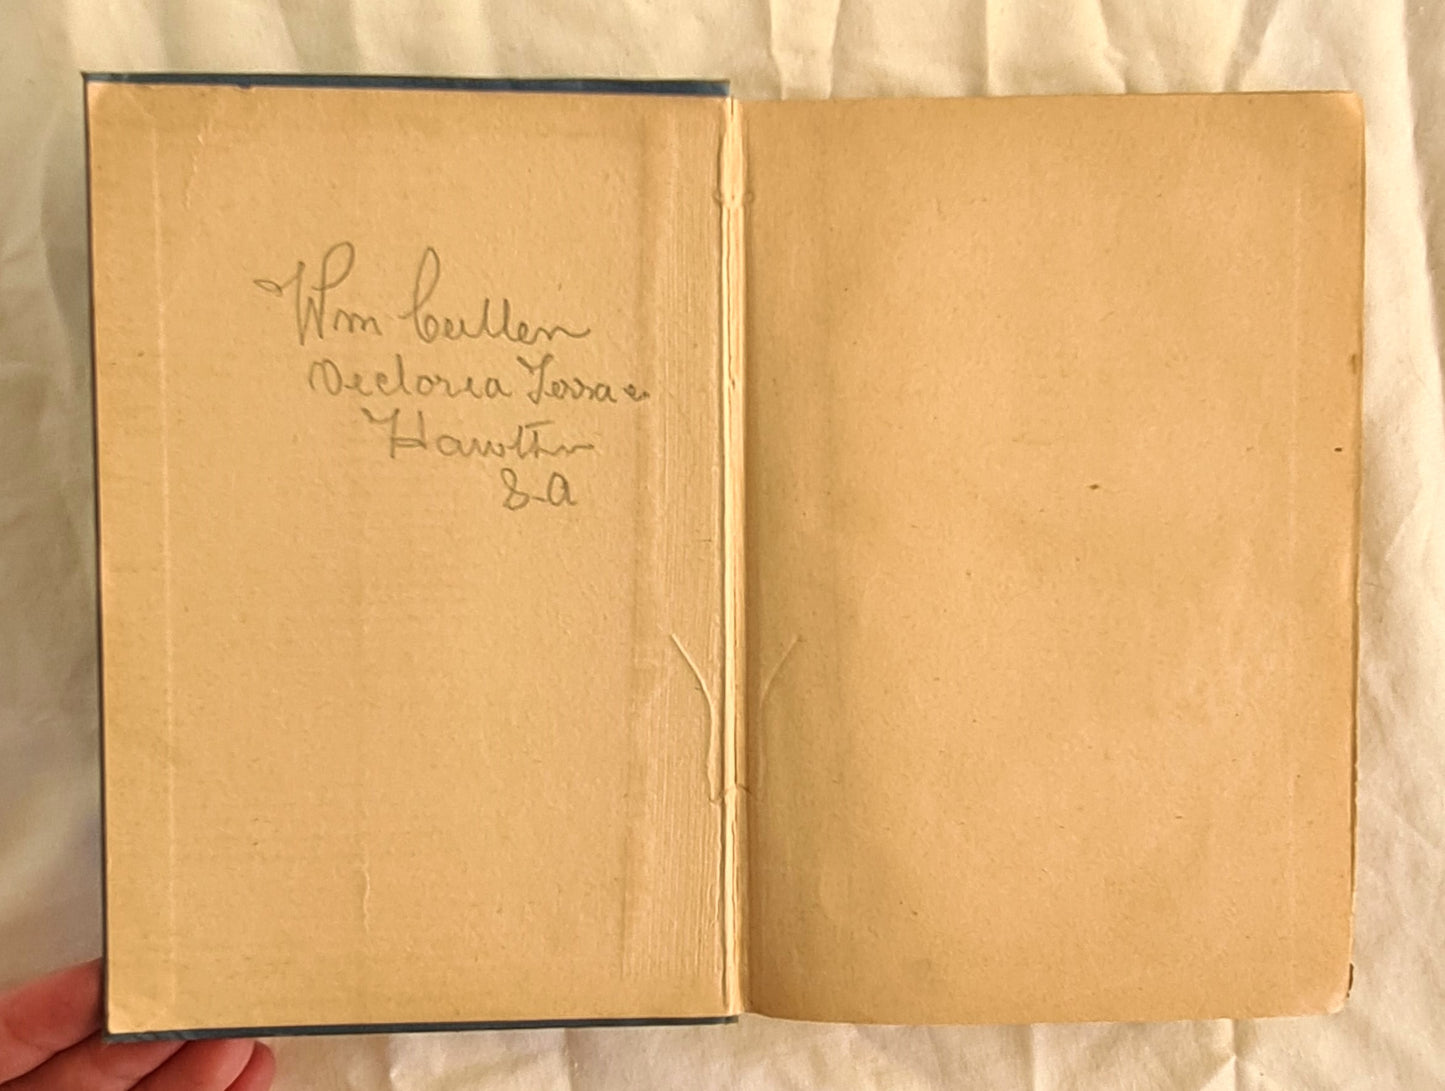 Wm Cullen
Victoria Terrace
Hawthn
S.A